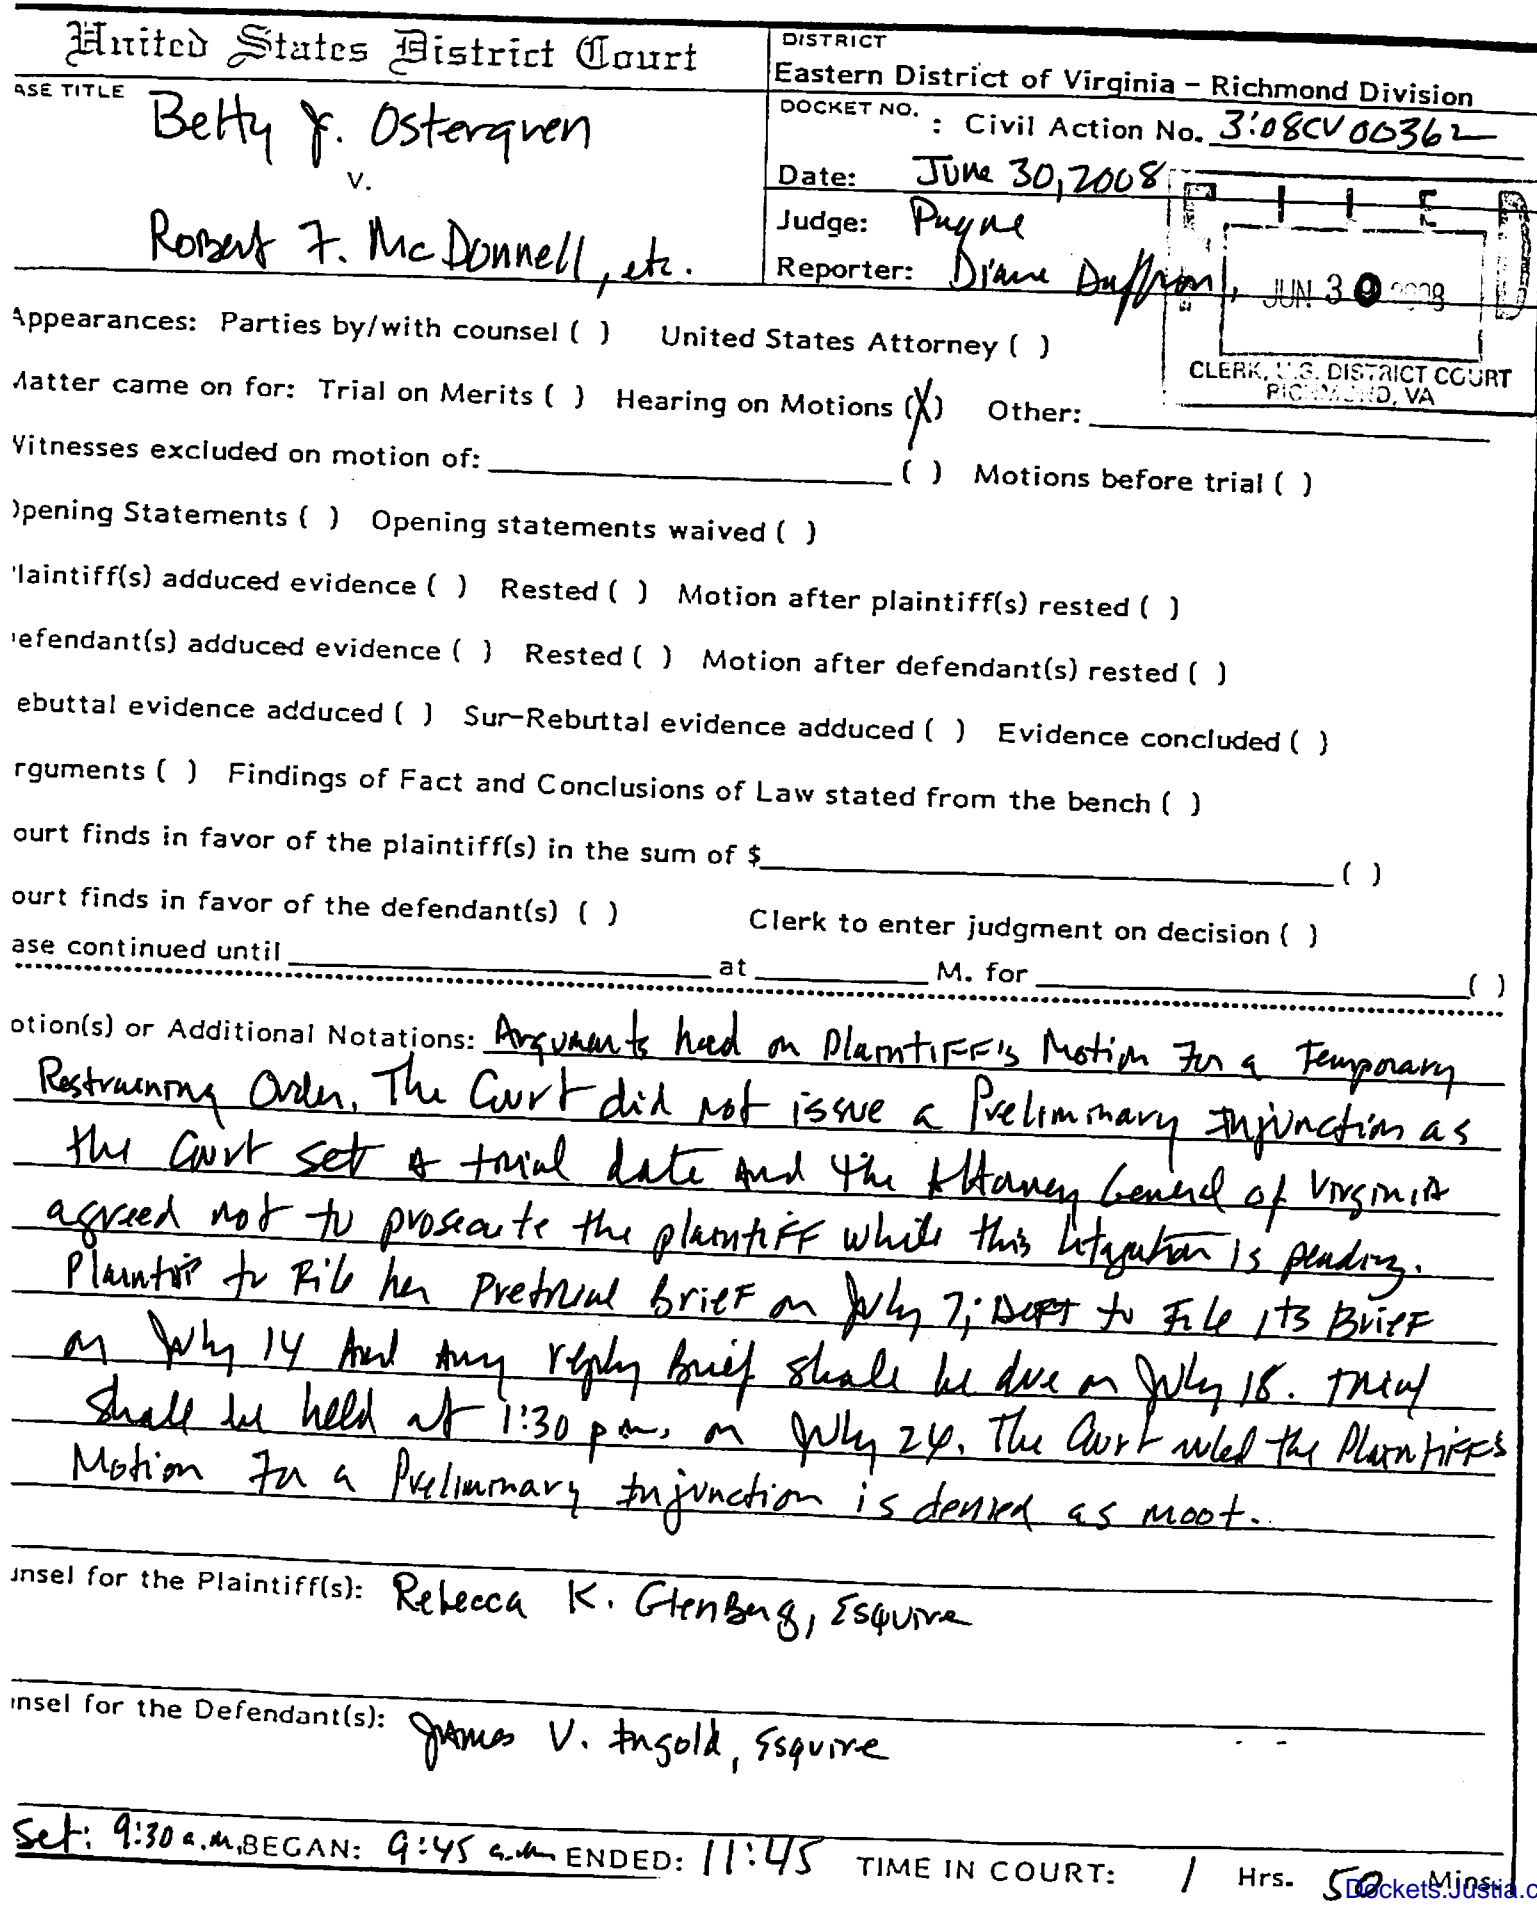 United States District Court
DISTRICT
Eastern District of Virginia – Richmond Division
ASE TITLE
Betty J. Ostergren
v.
Robert F. McDonnell, etc.
DOCKET NO. : Civil Action No. 3:08CV00362
Date: June 30, 2008
Judge: Payne
Reporter: Diane Daffron,
FILED
JUN 30 2008
CLERK, U.S. DISTRICT COURT
RICHMOND, VA
Appearances: Parties by/with counsel ( ) United States Attorney ( )
Matter came on for: Trial on Merits ( ) Hearing on Motions (X) Other:
Witnesses excluded on motion of: ( ) Motions before trial ( )
Opening Statements ( ) Opening statements waived ( )
laintiff(s) adduced evidence ( ) Rested ( ) Motion after plaintiff(s) rested ( )
efendant(s) adduced evidence ( ) Rested ( ) Motion after defendant(s) rested ( )
ebuttal evidence adduced ( ) Sur-Rebuttal evidence adduced ( ) Evidence concluded ( )
rguments ( ) Findings of Fact and Conclusions of Law stated from the bench ( )
ourt finds in favor of the plaintiff(s) in the sum of $ ( )
ourt finds in favor of the defendant(s) ( ) Clerk to enter judgment on decision ( )
ase continued until at M. for ( )
otion(s) or Additional Notations: Arguments had on Plaintiff's Motion For a Temporary
Restraining Order. The Court did not issue a Preliminary Injunction as
the Court set a trial date and the Attorney General of Virginia
agreed not to prosecute the plaintiff while this litigation is pending.
Plaintiff to File her Pretrial Brief on July 7; Deft to File its Brief
on July 14 And Any reply Brief shall be due on July 18. Trial
shall be held at 1:30 p.m. on July 24. The Court ruled the Plaintiff's
Motion For a Preliminary Injunction is denied as moot.
unsel for the Plaintiff(s): Rebecca K. Glenberg, Esquire
nsel for the Defendant(s): James V. Ingold, Esquire
Set: 9:30 a.m. BEGAN: 9:45 a.m. ENDED: 11:45 TIME IN COURT: 1 Hrs. 50 Mins.
Dockets.Justia.c